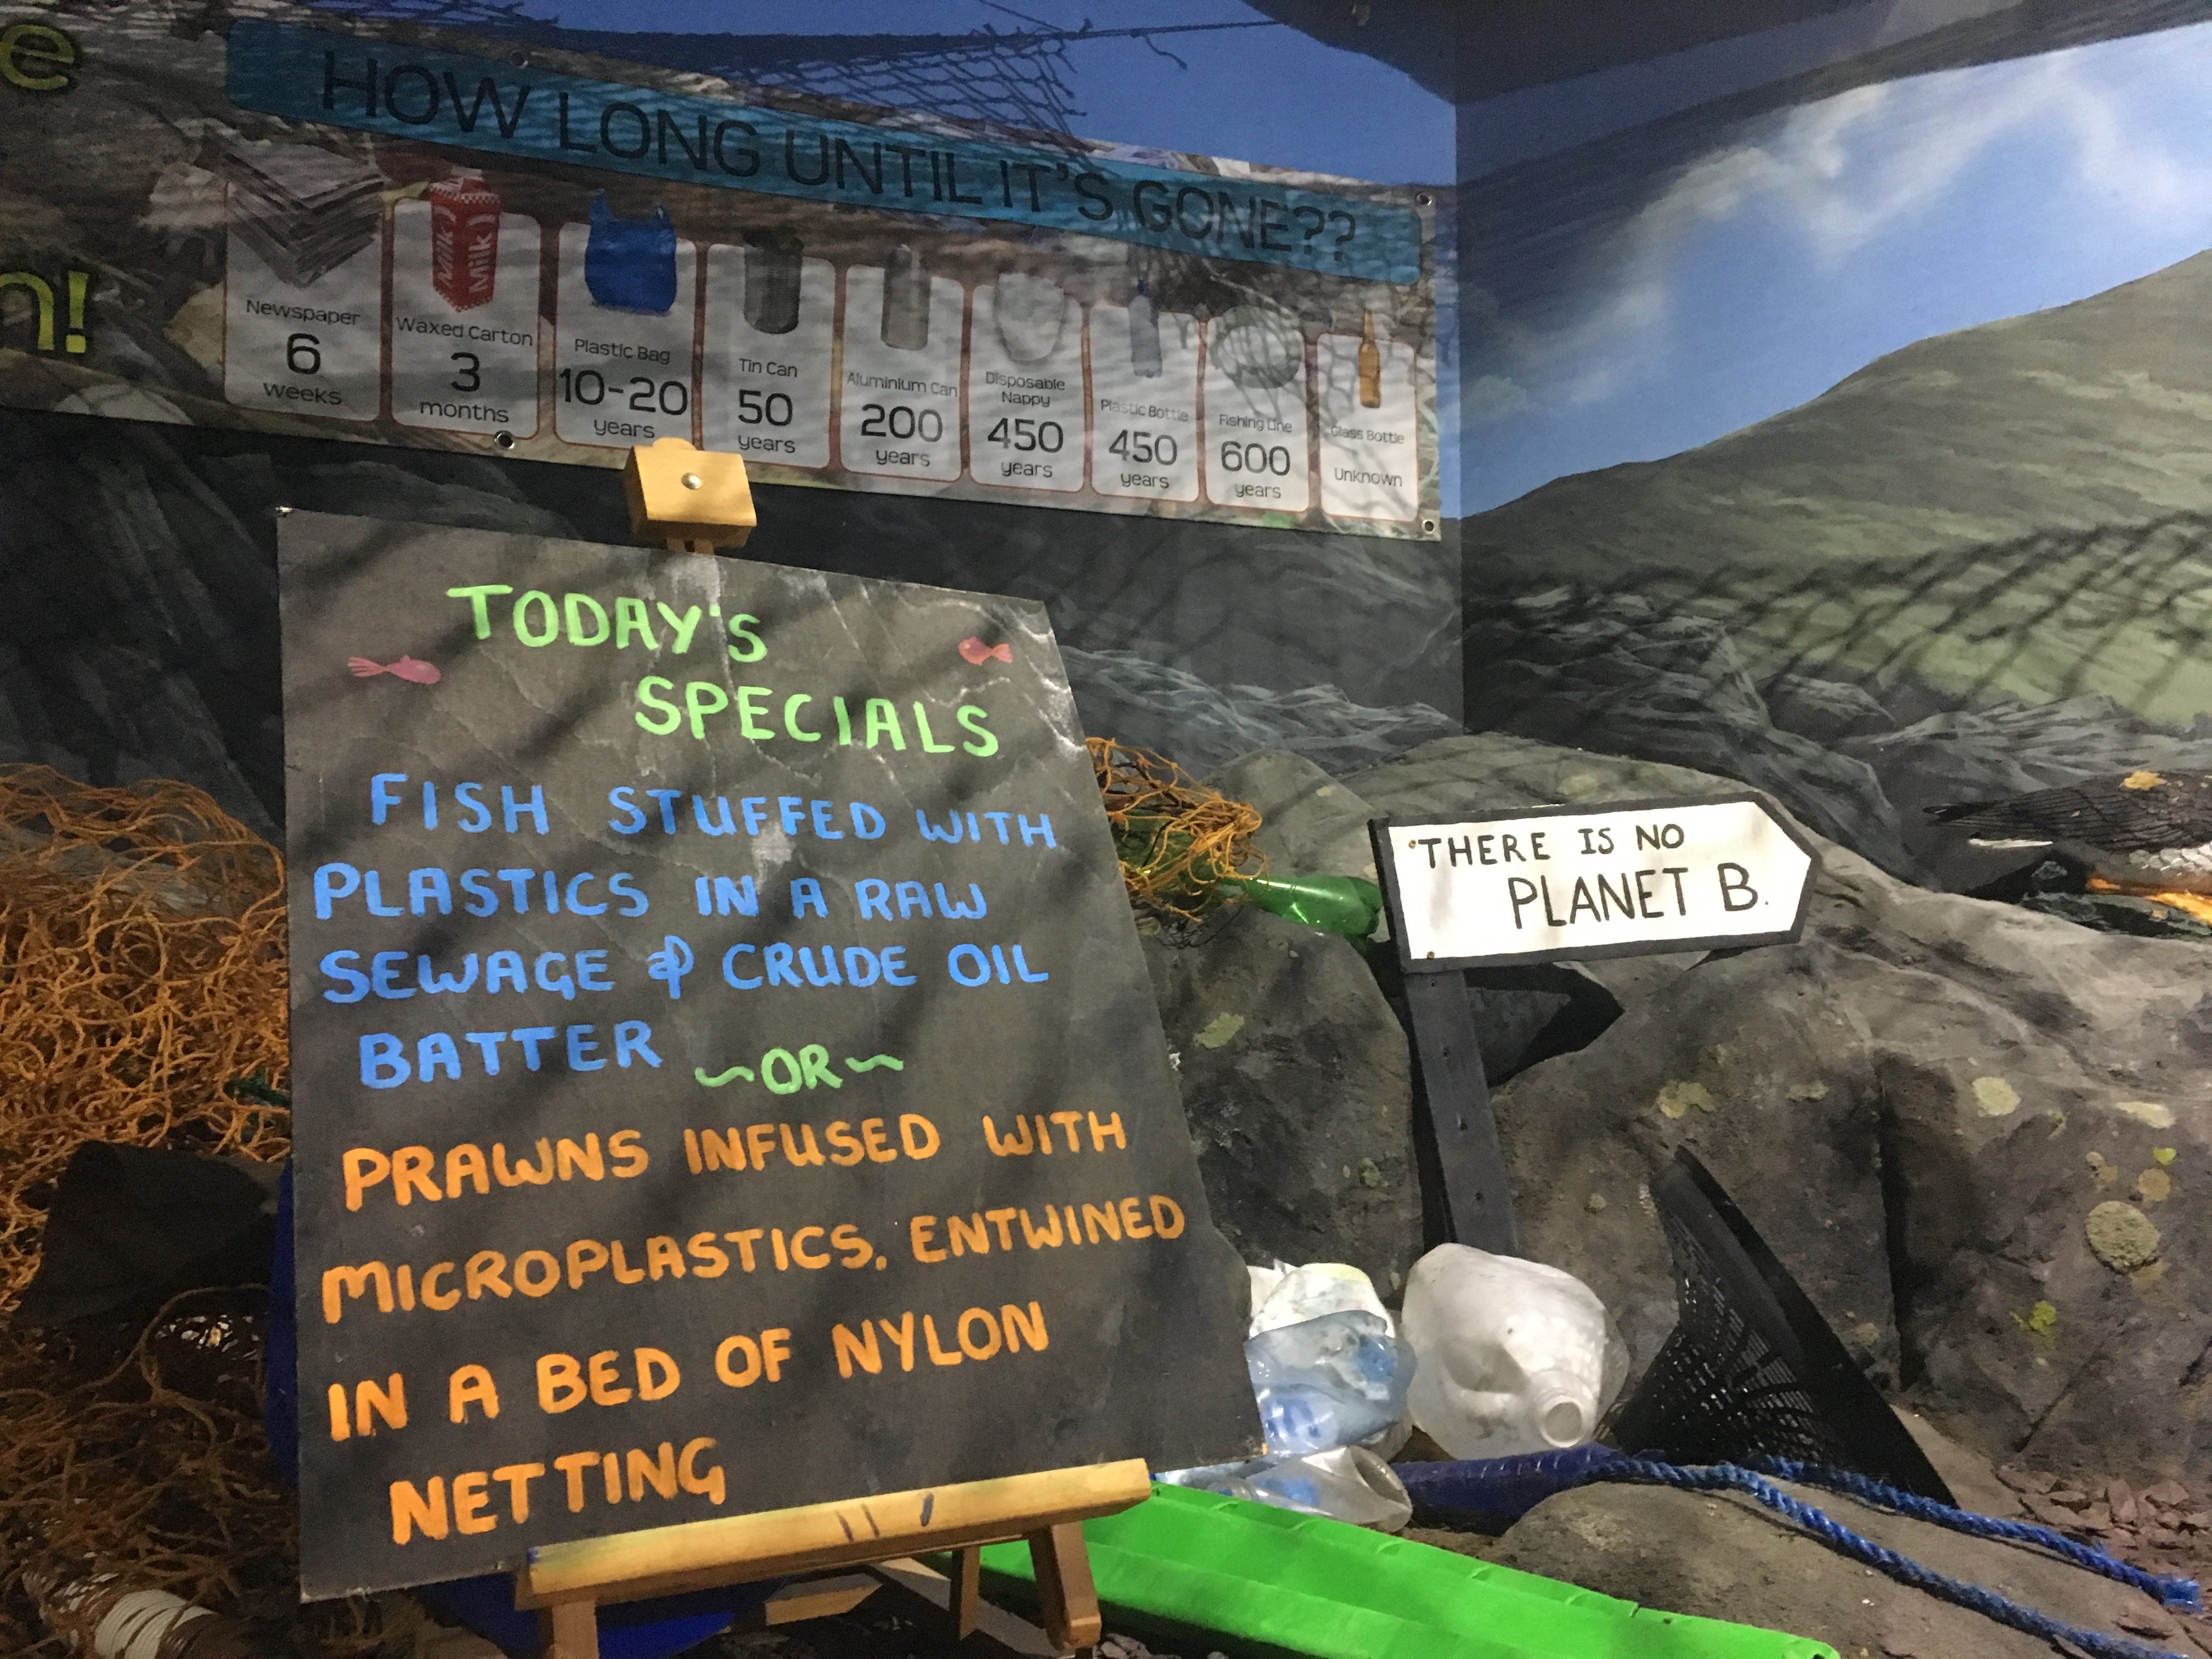 HOW LONG UNTIL IT'S GONE??
Newspaper
6
weeks
Waxed Carton
3
months
Plastic Bag
10-20
years
Tin Can
50
years
Aluminium Can
200
years
Disposable
Nappy
450
years
Plastic Bottle
450
years
Fishing Line
600
years
Glass Bottle
Unknown
Milk
Milk
TODAY'S
SPECIALS
FISH STUFFED WITH
PLASTICS IN A RAW
SEWAGE & CRUDE OIL
BATTER
~OR~
PRAWNS INFUSED WITH
MICROPLASTICS, ENTWINED
IN A BED OF NYLON
NETTING
THERE IS NO
PLANET B.